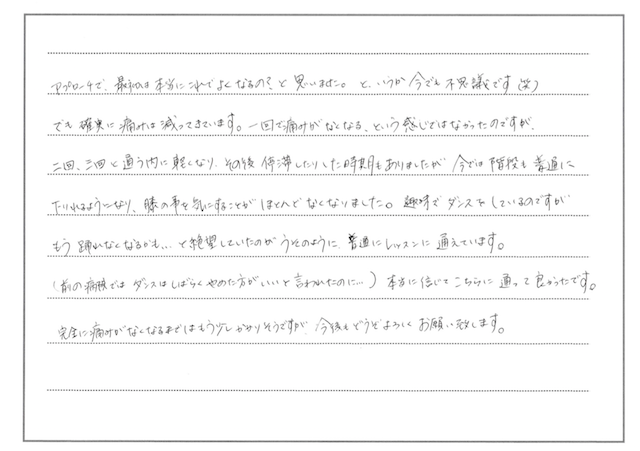 アプローチで、最初は本当にこれでよくなるの?と思いました。と、いうか今でも不思議です(笑)
でも確実に痛みは減ってきています。一回で痛みがなくなる、という感じではなかったのですが、
二回、三回と通う内に軽くなり、その後停滞したりした時期もありましたが今では階段も普通に
下りれるようになり、膝の事を気にすることがほとんどなくなりました。趣味でダンスをしているのですが
もう踊れなくなるかも…と絶望していたのがうそのように、普通にレッスンに通えています。
(前の病院ではダンスはしばらくやめた方がいいと言われたのに…)本当に信じてこちらに通って良かったです。
完全に痛みがなくなるまではもう少しかかりそうですが、今後もどうぞよろしくお願い致します。